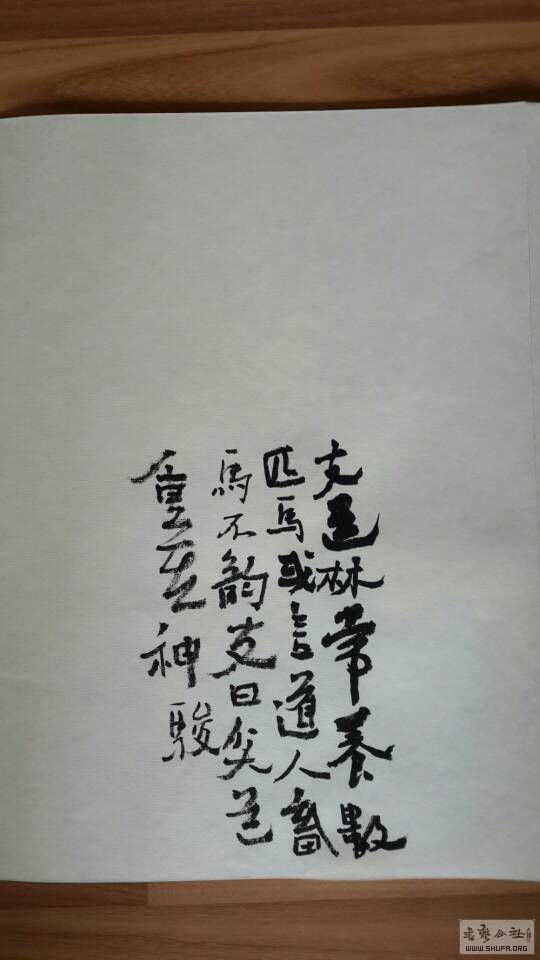 支道林常養數
匹馬或言道人畜
馬不韵支曰貧道
重其神駿
書藝公社
WWW.SHUFA.ORG